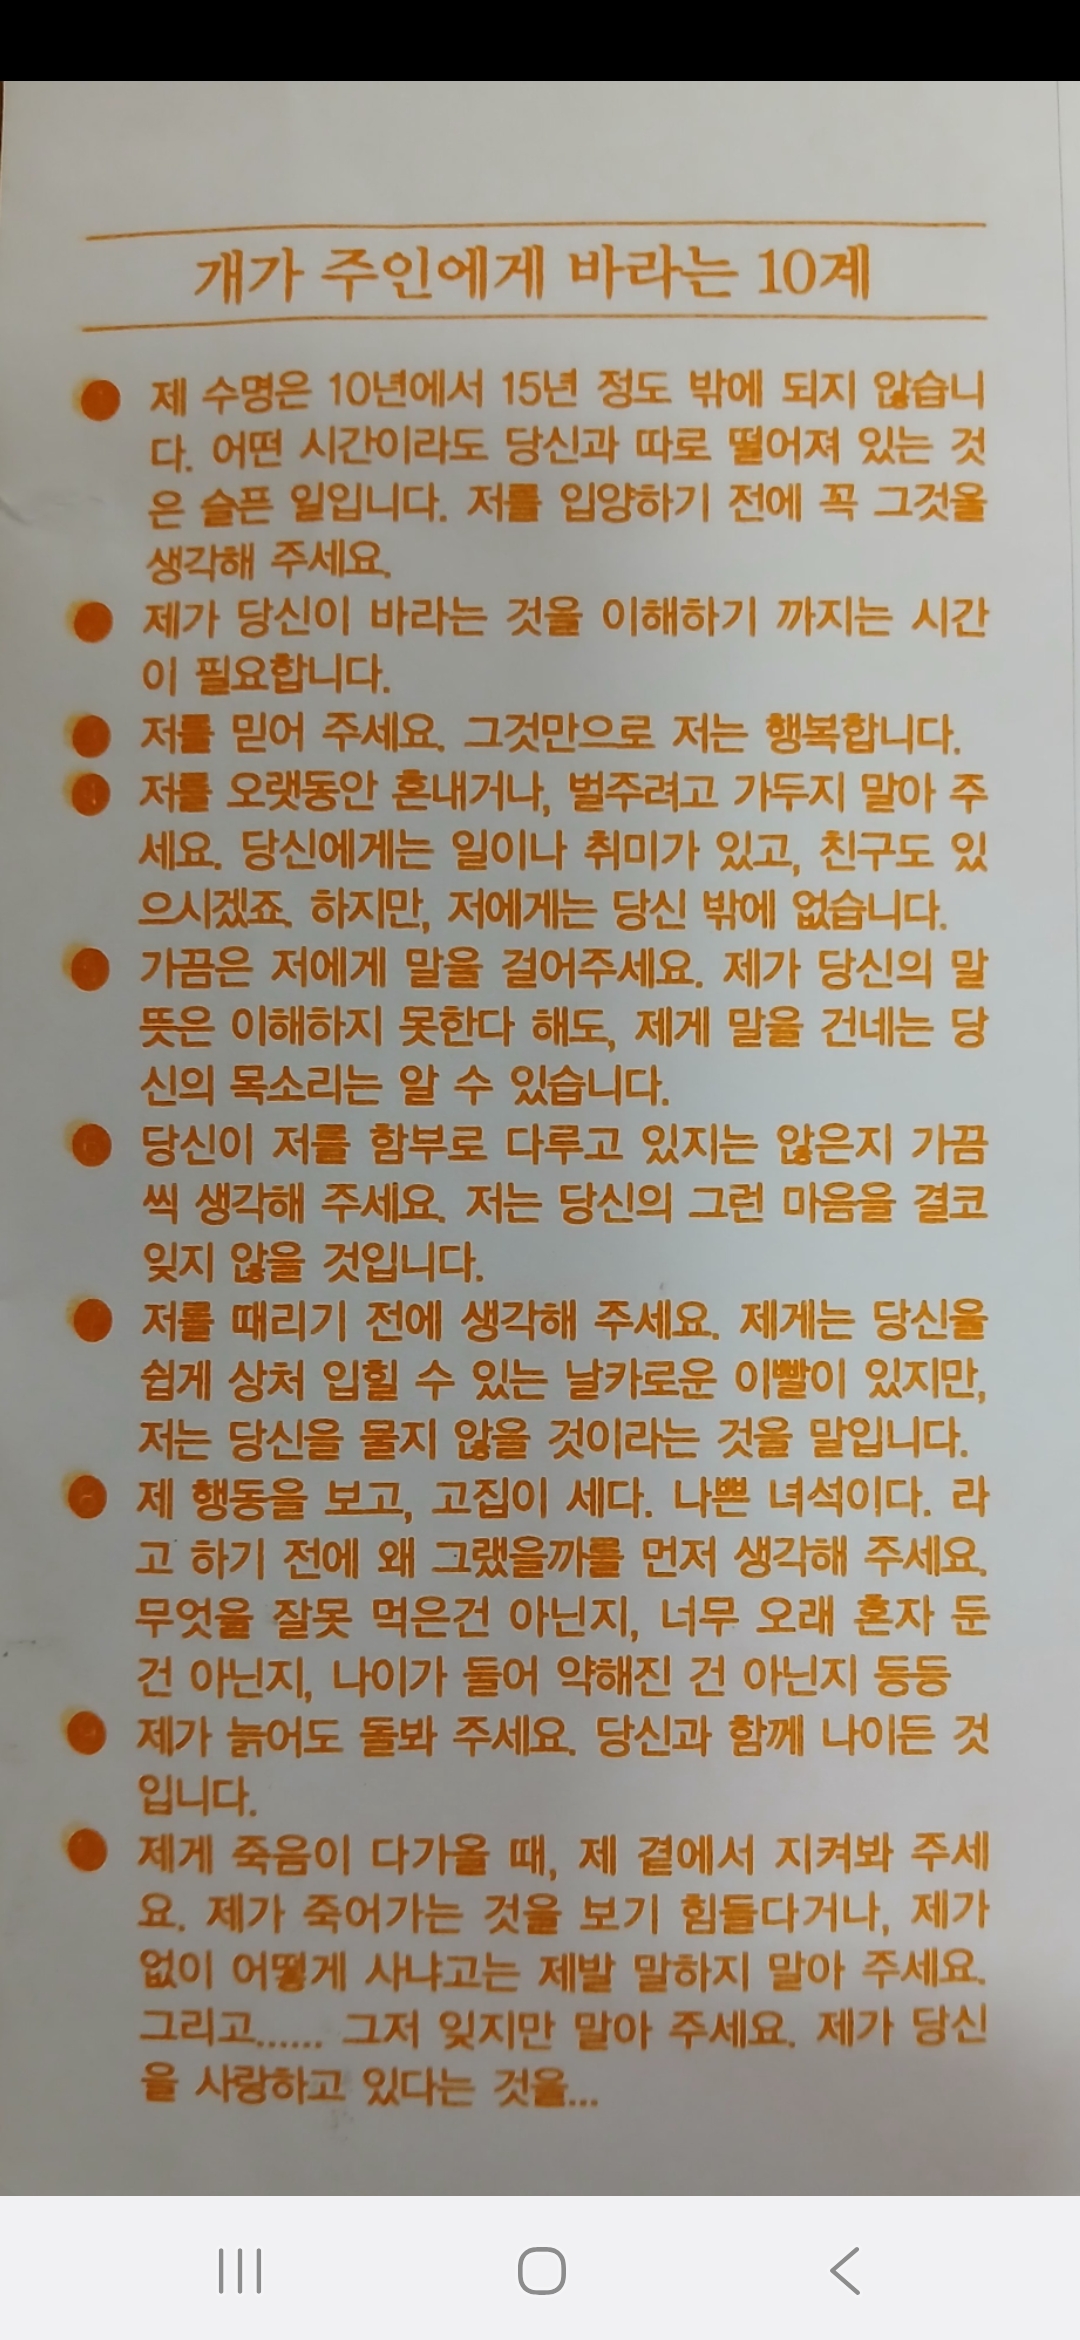 개가 주인에게 바라는 10계
제 수명은 10년에서 15년 정도 밖에 되지 않습니
다. 어떤 시간이라도 당신과 따로 떨어져 있는 것
은 슬픈 일입니다. 저를 입양하기 전에 꼭 그것을
생각해 주세요.
제가 당신이 바라는 것을 이해하기 까지는 시간
이 필요합니다.
저를 믿어 주세요. 그것만으로 저는 행복합니다.
저를 오랫동안 혼내거나, 벌주려고 가두지 말아 주
세요. 당신에게는 일이나 취미가 있고, 친구도 있
으시겠죠. 하지만, 저에게는 당신 밖에 없습니다.
가끔은 저에게 말을 걸어주세요. 제가 당신의 말
뜻은 이해하지 못한다 해도, 제게 말을 건네는 당
신의 목소리는 알 수 있습니다.
당신이 저를 함부로 다루고 있지는 않은지 가끔
씩 생각해 주세요. 저는 당신의 그런 마음을 결코
잊지 않을 것입니다.
저를 때리기 전에 생각해 주세요. 제게는 당신을
쉽게 상처 입힐 수 있는 날카로운 이빨이 있지만,
저는 당신을 물지 않을 것이라는 것을 말입니다.
제 행동을 보고, 고집이 세다. 나쁜 녀석이다. 라
고 하기 전에 왜 그랬을까를 먼저 생각해 주세요.
무엇을 잘못 먹은건 아닌지, 너무 오래 혼자 둔
건 아닌지, 나이가 들어 약해진 건 아닌지 등등
제가 늙어도 돌봐 주세요. 당신과 함께 나이든 것
입니다.
제게 죽음이 다가올 때, 제 곁에서 지켜봐 주세
요. 제가 죽어가는 것을 보기 힘들다거나, 제가
없이 어떻게 사냐고는 제발 말하지 말아 주세요.
그리고...... 그저 잊지만 말아 주세요. 제가 당신
을 사랑하고 있다는 것을...